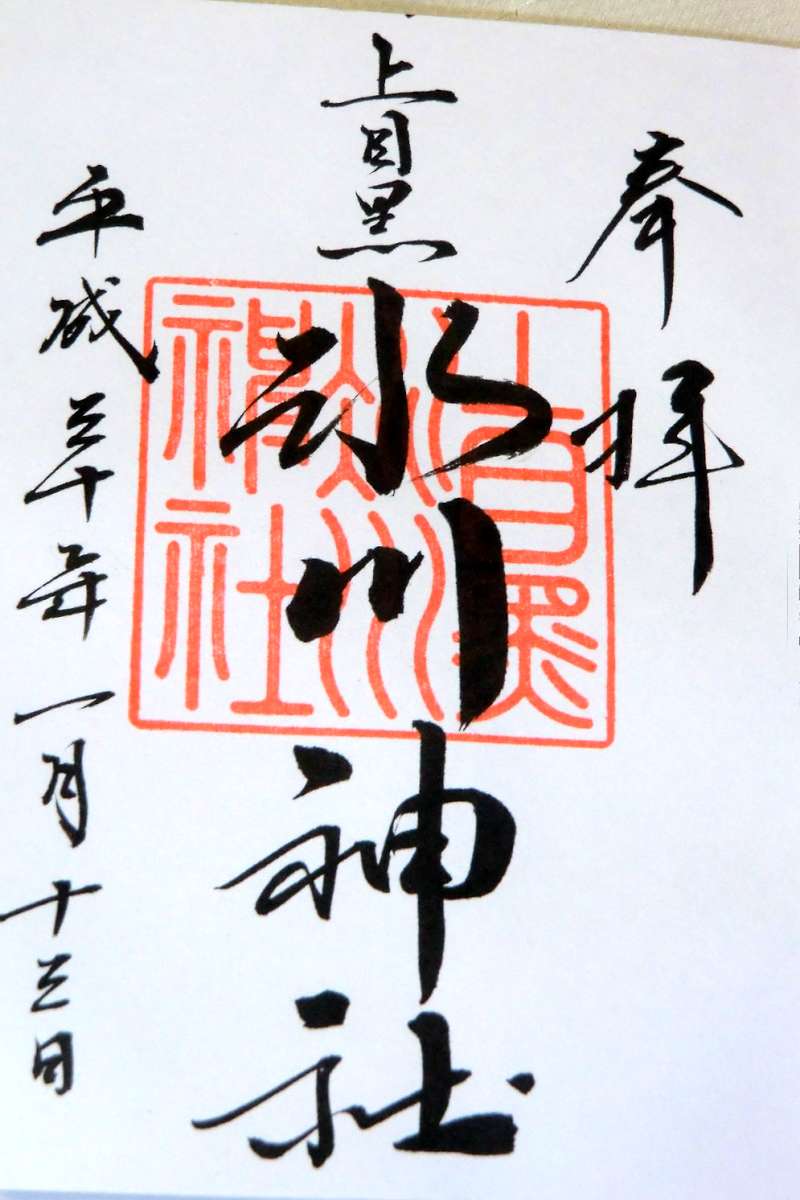 奉拝
上目黒
氷川神社
平成三十年一月十三日
上目黒
氷川
神社